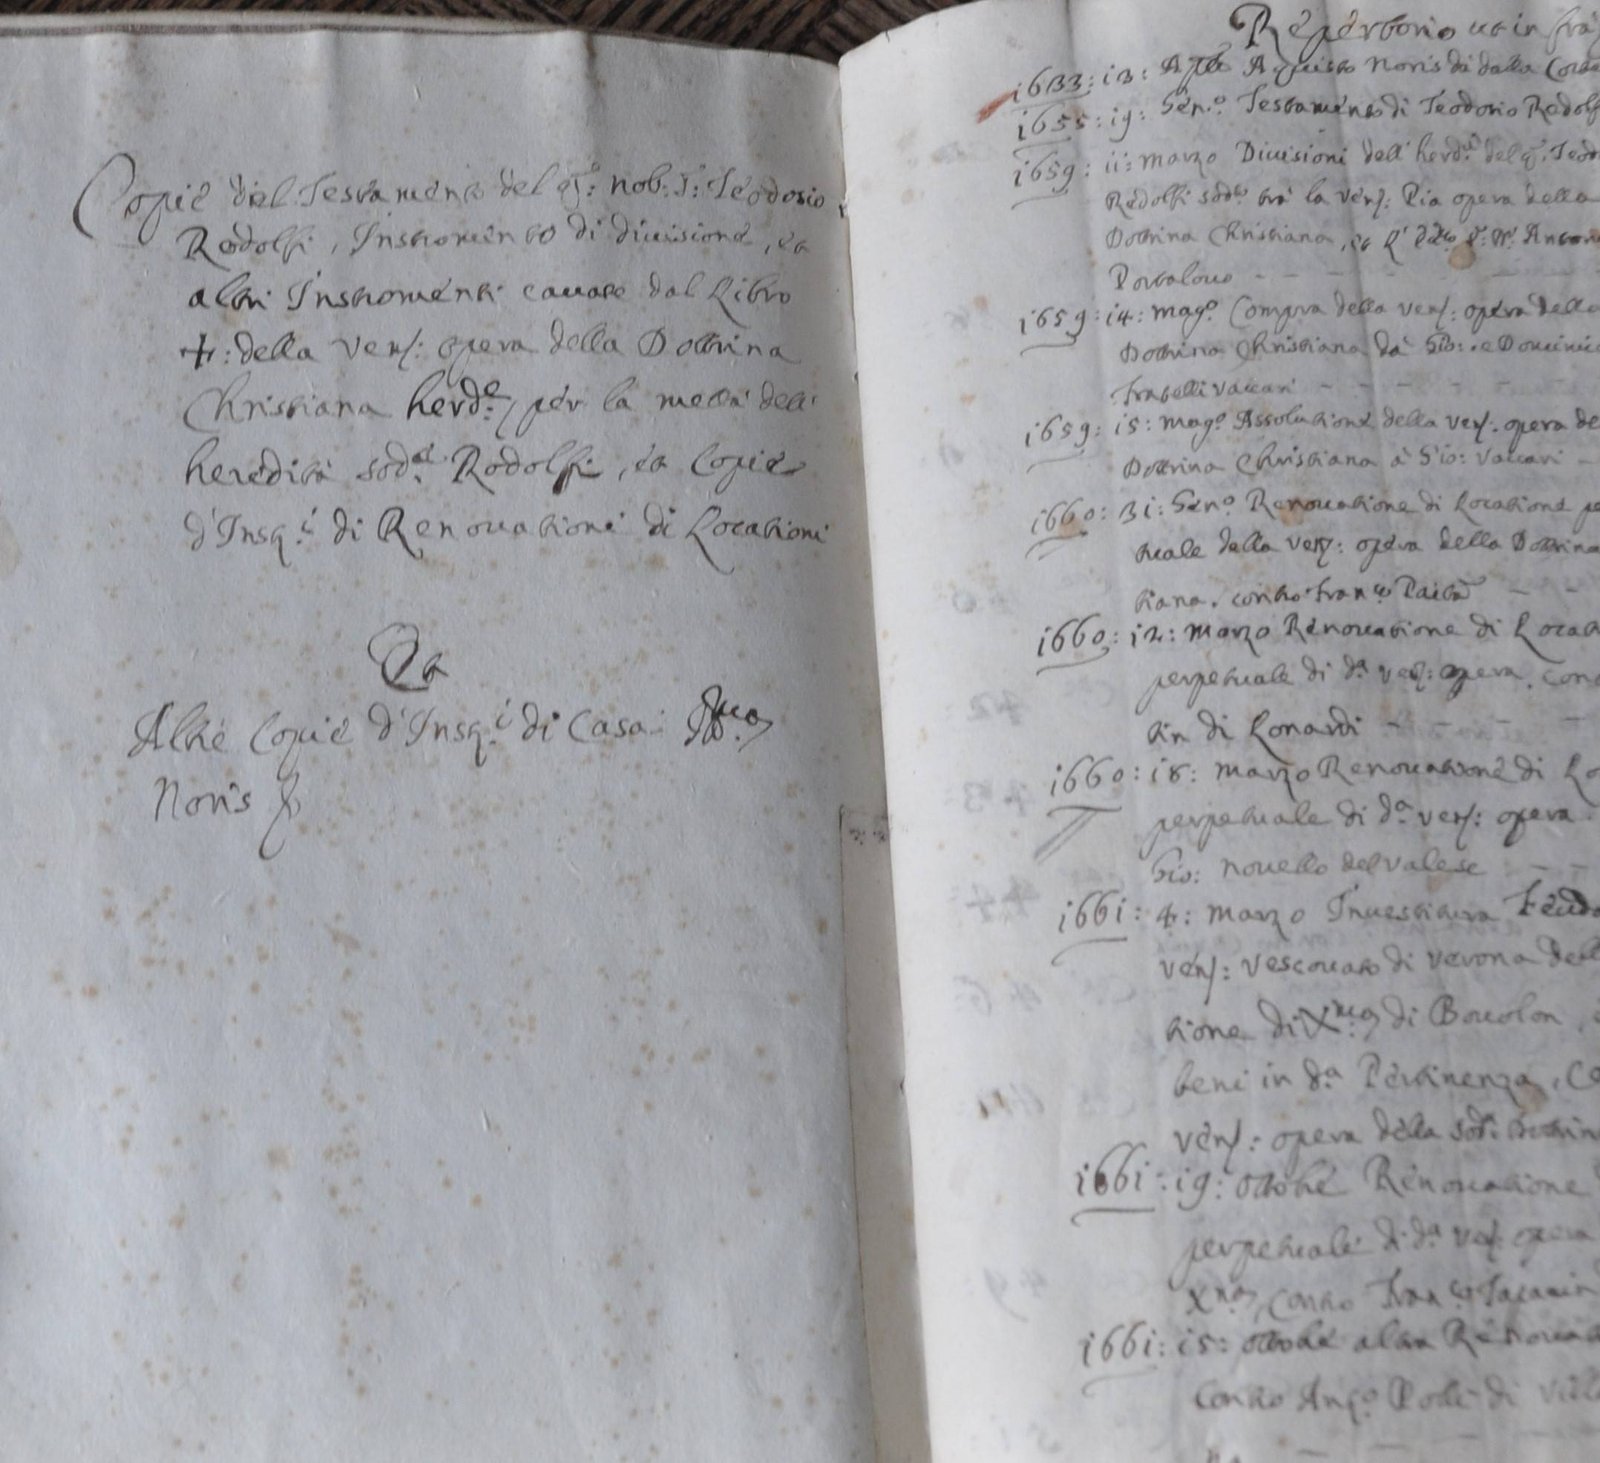 Copie del Testamento del q: Nob: S: Teodosio
Rodolfi, Instromento di diuisione, et
altri Instromenti cauate dal Libro
+: della Ven: opera della Dottrina
Christiana herde, per la mettà dell'
heredità sod.a Rodolfi, et Copie
d'Inst.i di Renouationi di Locationi
Et
Altre Copie d'Inst.i di Casa
Noris
Repertorio ut infra
1633: 13: Aple Aquisto Noris da dalla
1655: 19: Gen.o Testamento di Teodosio Rodolf
1659: 11: Marzo Diuisioni dell' hered.à del q: Teod
Rodolfi sod.o trà la Ven: Pia opera della
Dottrina Christiana, et Anton
Portalouo
1659: 14: Mag.o Compra della Ven: opera della
Dottrina Christiana da Gio: e Domini
fratelli Vaccari
1659: 15: Mag.o Assolutione della Ven: opera de
Dottrina Christiana à Gio: Vaccari
1660: 31: Gen.o Renouatione di Locatione pe
tuale della Ven: opera della Dottrina
tiana. contro Fran.co
1660: 12: Marzo Renouatione di Locati
perpetuale di d.a Ven: opera. con
tin di Lonardi
1660: 18: Marzo Renouatione di Lo
perpetuale di d.a Ven: opera.
Gio: Nouello del Valese
1661: 4: Marzo Inuestitura Feudo
Ven: Vescouato di Verona dell
tione di Xma di Bouolon,
beni in d.a Pertinenza, Co
Ven: opera della sod.a Dottrin
1661: 19: ottobre Renouatione
perpetuale di d.a Ven: opera
Xna, Contro Fran.co
1661: 15: ottobre altra Renouat
Contro Ang.o di Villa